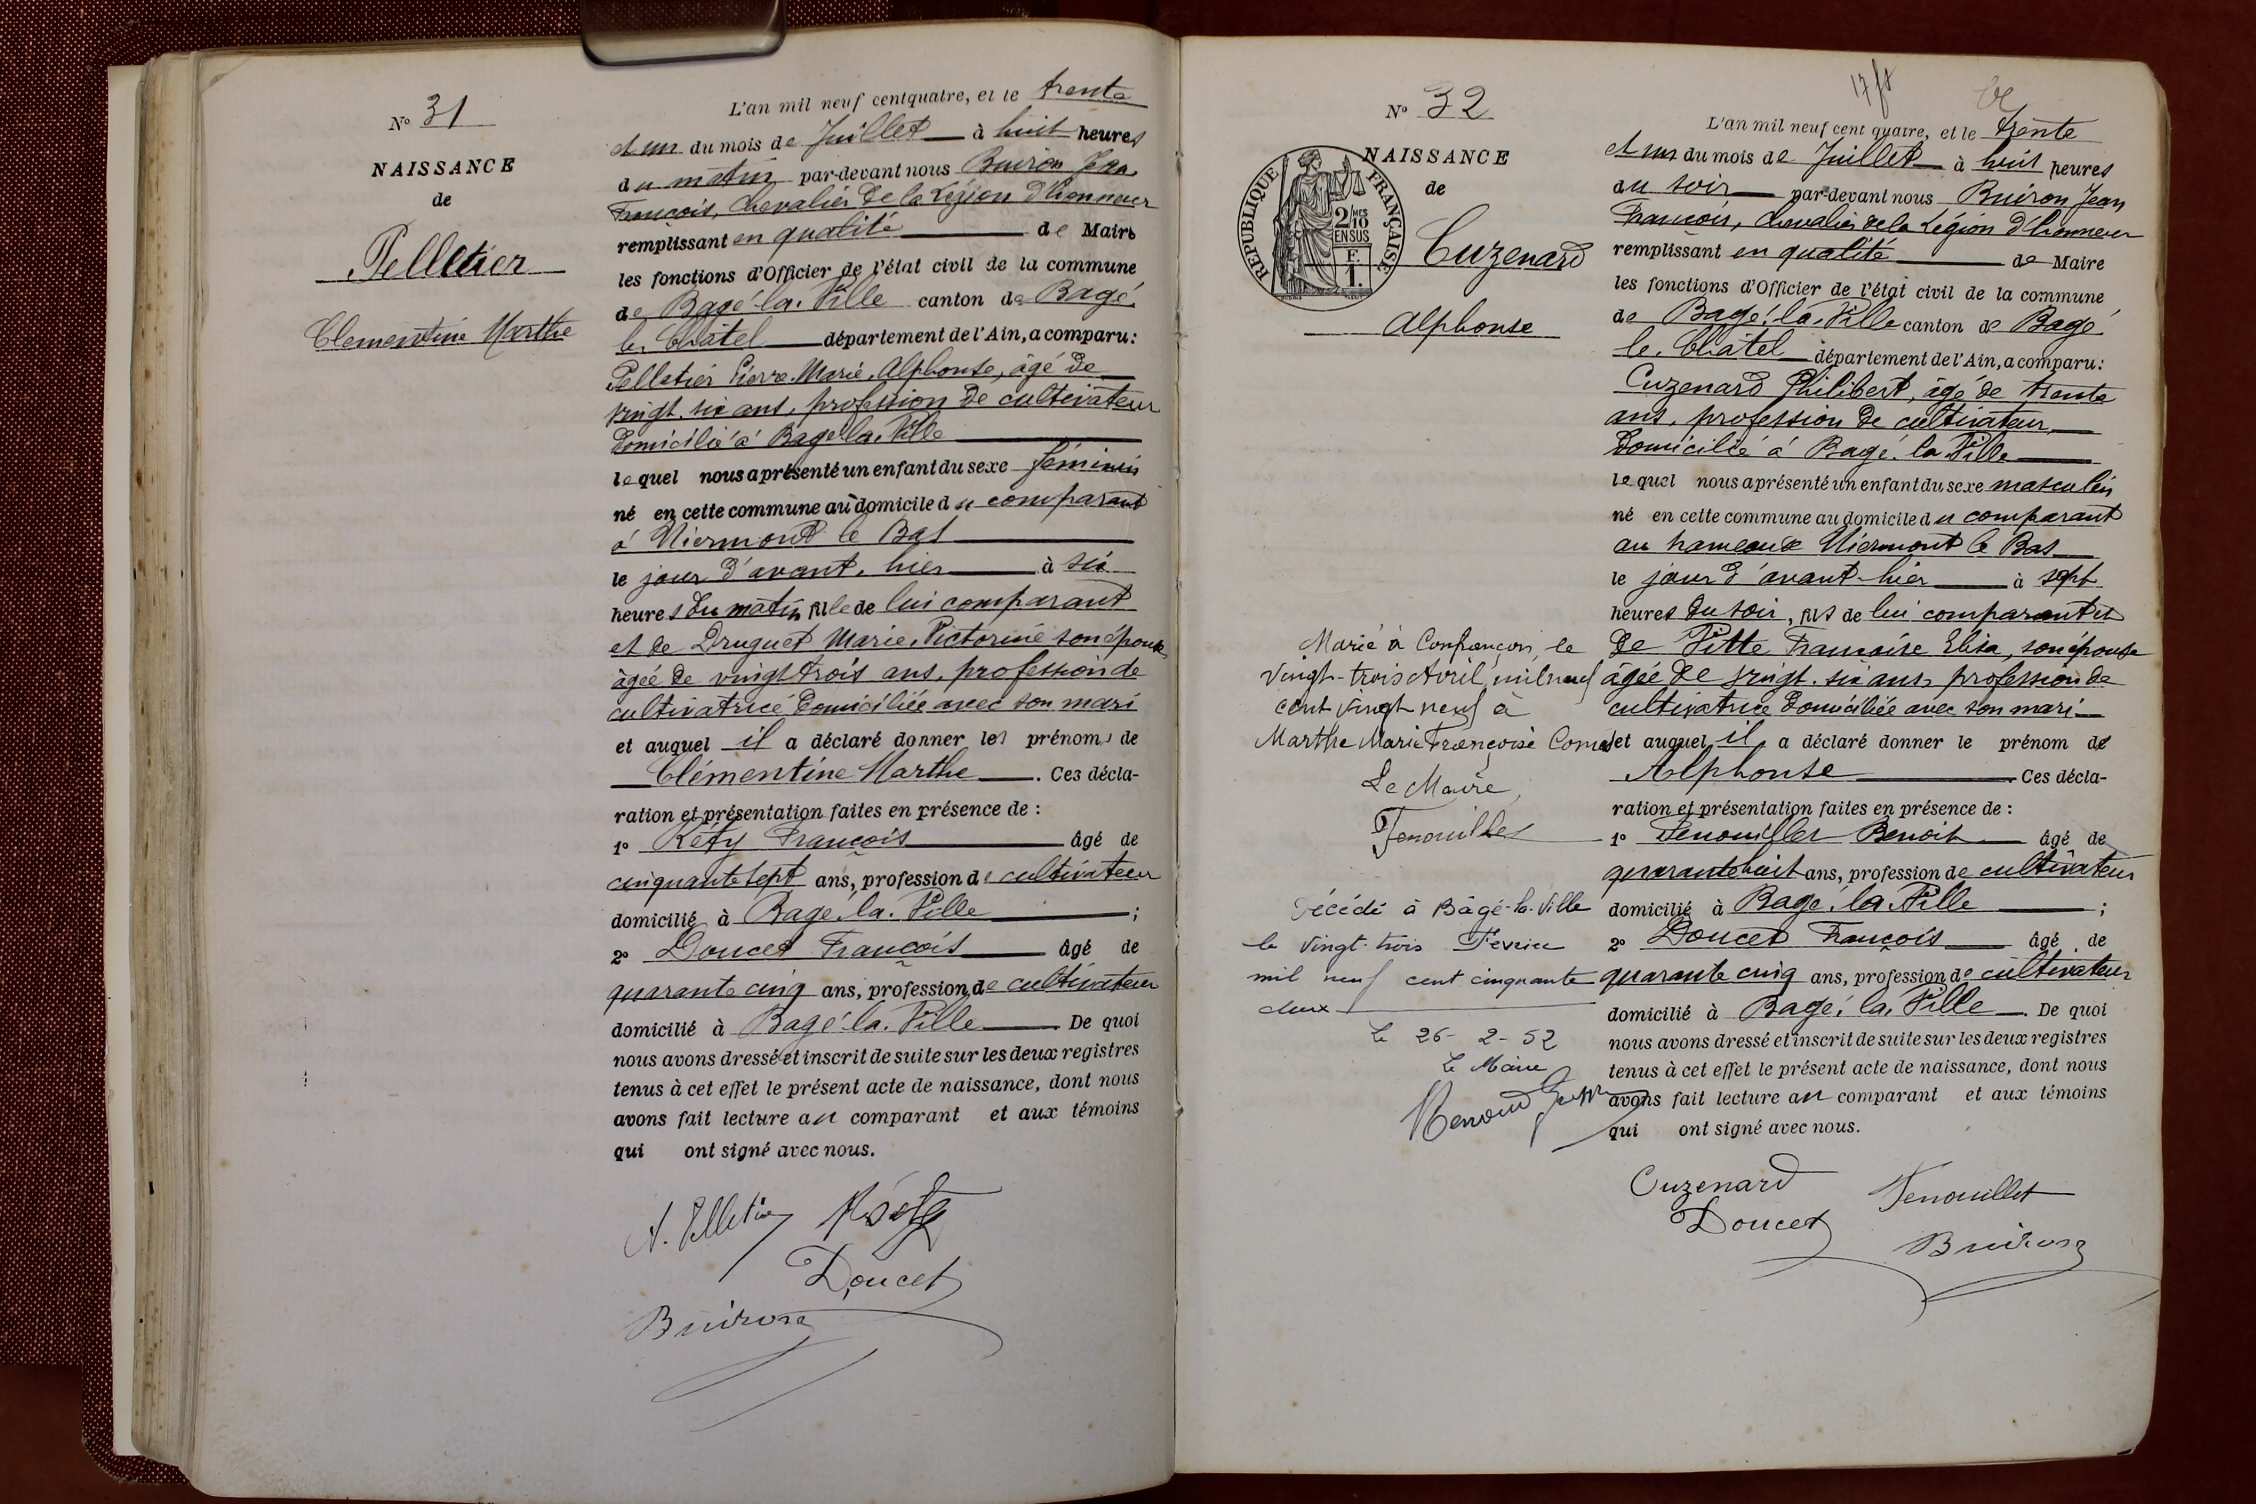 Nº 31
NAISSANCE
de
Pelletier
Clementine Marthe
L'an mil neuf cent quatre, et le trente
et un du mois de Juillet à huit heures
du matin par-devant nous Buiron Jean
François, chevalier de la Légion d'honneur
remplissant en qualité de Maire
les fonctions d'Officier de l'état civil de la commune
de Bagé-la-Ville canton de Bagé
le Châtel département de l'Ain, a comparu:
Pelletier Pierre Marie Alphonse, âgé de
vingt-six ans, profession de cultivateur
domicilié à Bagé la Ville
lequel nous a présenté un enfant du sexe féminin
né en cette commune au domicile du comparant
à Niermond le Bas
le jour d'avant-hier à six
heures du matin, fille de lui comparant
et de Druguet Marie Victorine son épouse
âgée de vingt trois ans, profession de
cultivatrice domiciliée avec son mari
et auquel il a déclaré donner les prénoms de
Clémentine Marthe. Ces décla-
ration et présentation faites en présence de :
1º Réty François âgé de
cinquante sept ans, profession de cultivateur
domicilié à Bagé-la-Ville ;
2º Doucet François âgé de
quarante cinq ans, profession de cultivateur
domicilié à Bagé-la-Ville. De quoi
nous avons dressé et inscrit de suite sur les deux registres
tenus à cet effet le présent acte de naissance, dont nous
avons fait lecture au comparant et aux témoins
qui ont signé avec nous.
A. Pelletier Réty
Doucet
Buiron
Nº 32
NAISSANCE
de
RÉPUBLIQUE FRANÇAISE
2/10 MES
EN SUS
F.
1.
Cuzenard
Alphonse
L'an mil neuf cent quatre, et le trente
et un du mois de Juillet à huit heures
du soir par-devant nous Buiron Jean
François, chevalier de la Légion d'honneur
remplissant en qualité de Maire
les fonctions d'Officier de l'état civil de la commune
de Bagé-la-Ville canton de Bagé
le Châtel département de l'Ain, a comparu:
Cuzenard Philibert, âgé de trente
ans, profession de cultivateur
domicilié à Bagé-la-Ville
lequel nous a présenté un enfant du sexe masculin
né en cette commune au domicile du comparant
au hameau de Niermont le Bas
le jour d'avant-hier à sept
heures du soir, fils de lui comparant et
de Pitte Françoise Elisa, son épouse
âgée de vingt-six ans, profession de
cultivatrice domiciliée avec son mari
et auquel il a déclaré donner le prénom de
Alphonse. Ces décla-
ration et présentation faites en présence de :
1º Fenouillet Benoit âgé de
quarante huit ans, profession de cultivateur
domicilié à Bagé-la-Ville ;
2º Doucet François âgé de
quarante cinq ans, profession de cultivateur
domicilié à Bagé-la-Ville. De quoi
nous avons dressé et inscrit de suite sur les deux registres
tenus à cet effet le présent acte de naissance, dont nous
avons fait lecture au comparant et aux témoins
qui ont signé avec nous.
Cuzenard Fenouillet
Doucet Buiron
Marié à Confrançon, le
vingt-trois Avril mil neuf
cent vingt neuf à
Marthe Marie Françoise
Le Maire,
Fenouillet
Décédé à Bâgé-la-Ville
le vingt-trois Février
mil neuf cent cinquante
deux
Le 26-2-52
Le Maire